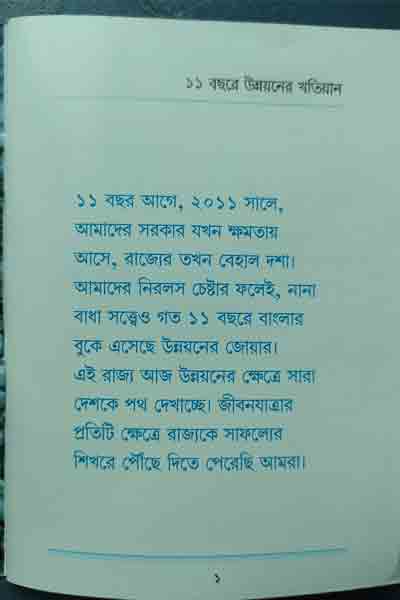 ১১ বছরে উন্নয়নের খতিয়ান
১১ বছর আগে, ২০১১ সালে,
আমাদের সরকার যখন ক্ষমতায়
আসে, রাজ্যের তখন বেহাল দশা।
আমাদের নিরলস চেষ্টার ফলেই, নানা
বাধা সত্ত্বেও গত ১১ বছরে বাংলার
বুকে এসেছে উন্নয়নের জোয়ার।
এই রাজ্য আজ উন্নয়নের ক্ষেত্রে সারা
দেশকে পথ দেখাচ্ছে। জীবনযাত্রার
প্রতিটি ক্ষেত্রে রাজ্যকে সাফল্যের
শিখরে পৌঁছে দিতে পেরেছি আমরা।
১